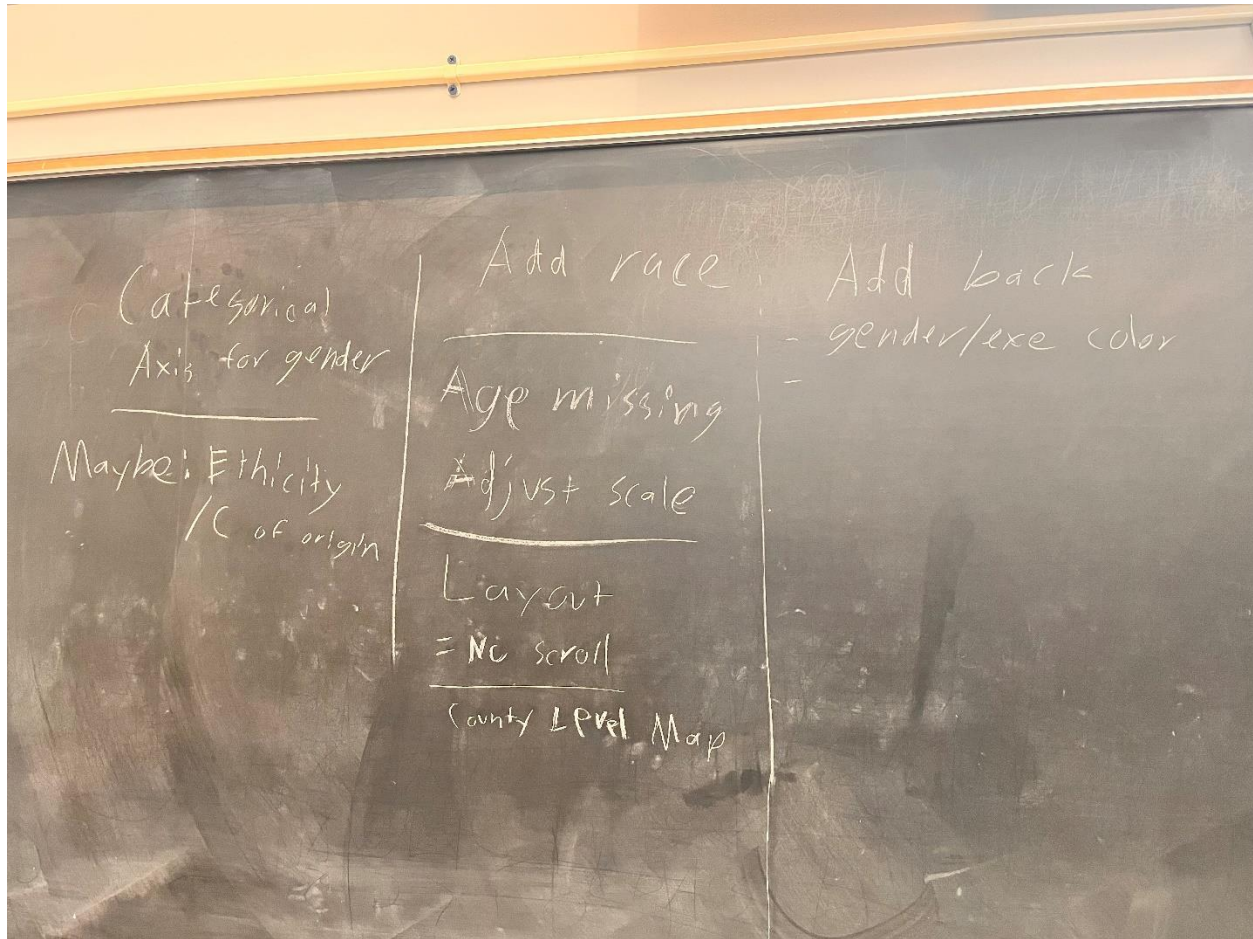 Categorical
Axis for gender
Maybe: Ethicity
/C of origin
Add race
Age missing
Adjust scale
Layout
= No scroll
County Level Map
Add back
- gender/exe color
-